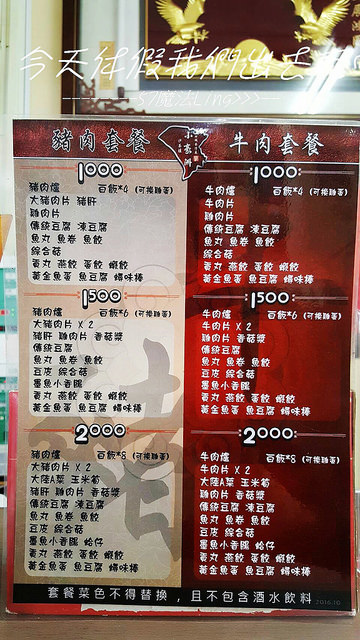 今天休假我們出去
57魔法Ling>>>
豬肉套餐
牛肉套餐
1000
豬肉爐 白飯*4 (可換雞蛋)
大豬肉片 豬肝
雞肉片
傳統豆腐 凍豆腐
魚丸 魚卷 魚餃
綜合菇
貢丸 燕餃 蛋餃 蝦餃
黃金魚蛋 魚豆腐 蟳味棒
1000
牛肉爐 白飯*4 (可換雞蛋)
牛肉片
雞肉片
傳統豆腐 凍豆腐
魚丸 魚卷 魚餃
綜合菇
貢丸 燕餃 蛋餃 蝦餃
黃金魚蛋 魚豆腐 蟳味棒
1500
豬肉爐 白飯*6 (可換雞蛋)
大豬肉片 X 2
豬肝 雞肉片 香菇漿
傳統豆腐
魚丸 魚卷 魚餃
豆皮 綜合菇
墨魚小香腸
貢丸 燕餃 蛋餃 蝦餃
黃金魚蛋 魚豆腐 蟳味棒
1500
牛肉爐 白飯*6 (可換雞蛋)
牛肉片 X 2
雞肉片 香菇漿
傳統豆腐
魚丸 魚卷 魚餃
豆皮 綜合菇
墨魚小香腸
貢丸 燕餃 蛋餃 蝦餃
黃金魚蛋 魚豆腐 蟳味棒
2000
豬肉爐 白飯*8 (可換雞蛋)
大豬肉片 X 2
大陸A菜 玉米筍
豬肝 雞肉片 香菇漿
傳統豆腐 凍豆腐
魚丸 魚卷 魚餃
豆皮 綜合菇
墨魚小香腸 蛤仔
貢丸 燕餃 蛋餃 蝦餃
黃金魚蛋 魚豆腐 蟳味棒
2000
牛肉爐 白飯*8 (可換雞蛋)
牛肉片 X 2
大陸A菜 玉米筍
雞肉片 香菇漿
傳統豆腐 凍豆腐
魚丸 魚卷 魚餃
豆皮 綜合菇
墨魚小香腸 蛤仔
貢丸 燕餃 蛋餃 蝦餃
黃金魚蛋 魚豆腐 蟳味棒
套餐菜色不得替換，且不包含酒水飲料 2016.10